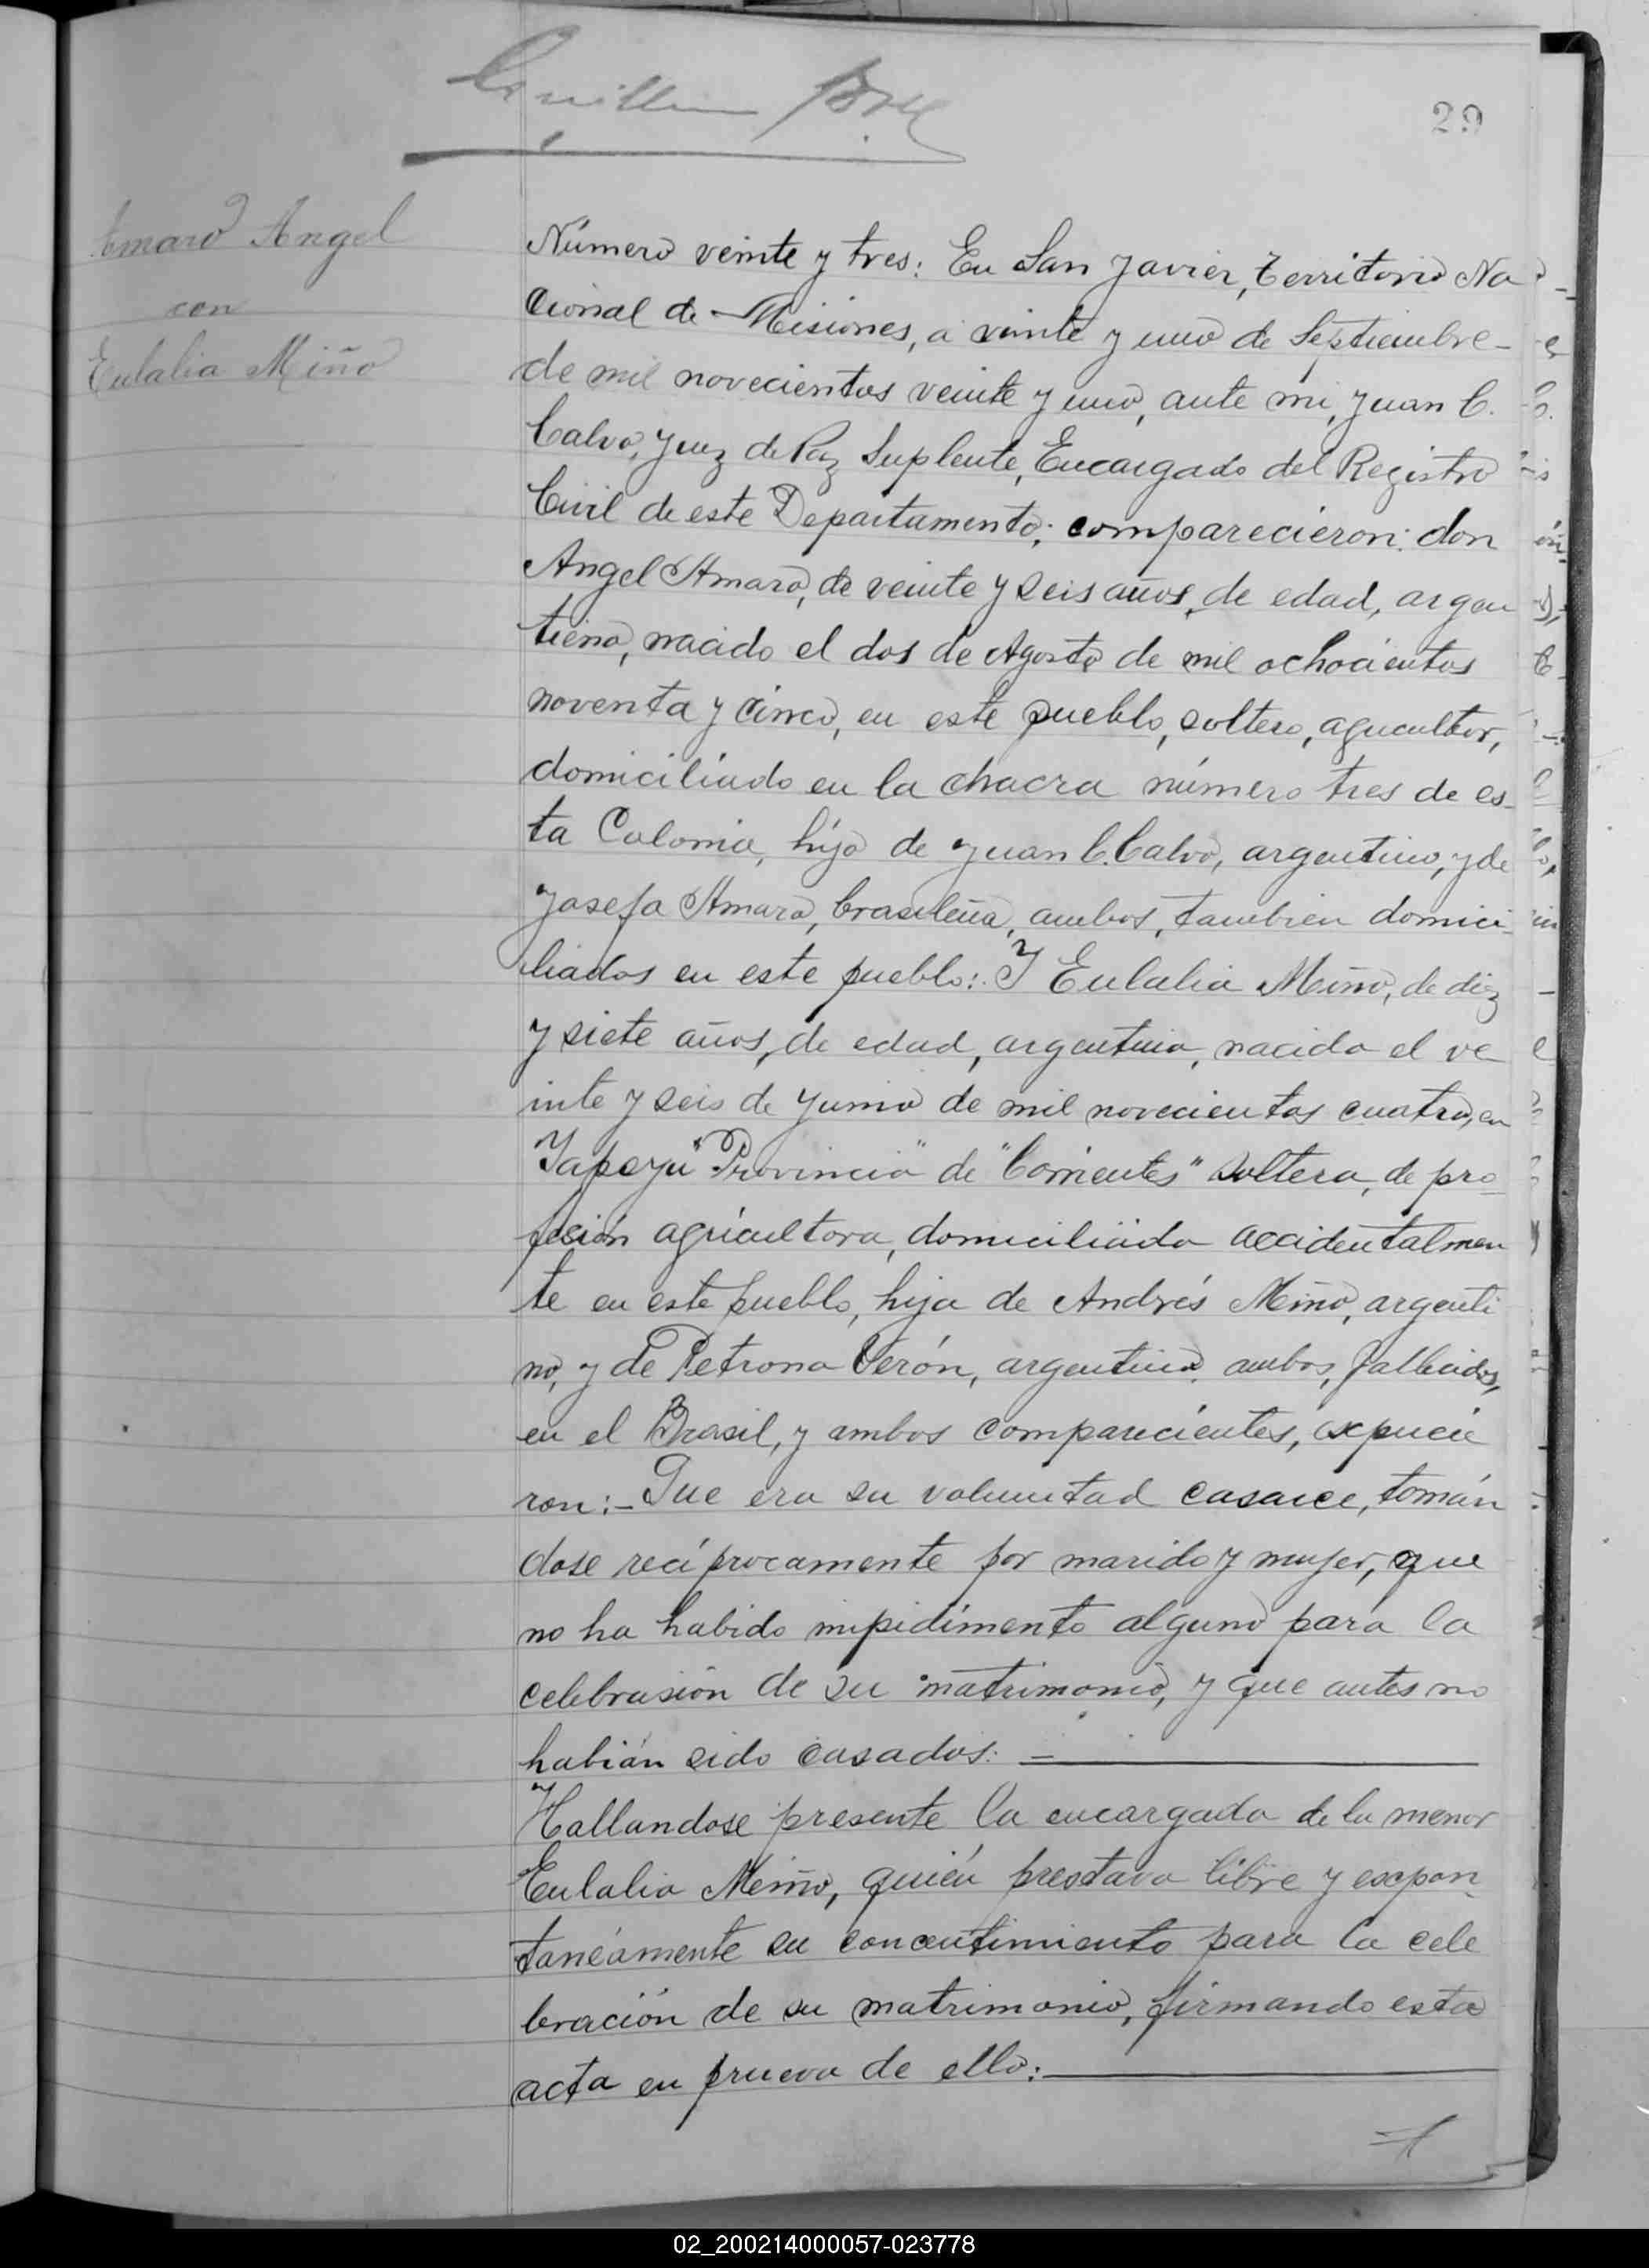 29
Amaro Angel
con
Eulalia Miño
Número veinte y tres: En San Javier, Territorio Na
cional de Misiones, a veinte y uno de Septiembre
de mil novecientos veinte y uno, ante mi, Juan C.
Calvo, Juez de Paz Suplente, Encargado del Registro
Civil de este Departamento; comparecieron: don
Angel Amaro, de veinte y seis años, de edad, argen
tieno, nacido el dos de Agosto de mil ochocientos
noventa y cinco, en este pueblo, soltero, agricultor,
domiciliado en la chacra número tres de es
ta Colonia, hijo de Juan C. Calvo, argentino, y de
Josefa Amaro, brasileña, ambos, tambien domici
liados en este pueblo: Y Eulalia Miño, de diez
y siete años, de edad, argentina, nacida el ve
inte y seis de Junio de mil novecientos cuatro, en
Yapeyú "Provincia" de "Corrientes" soltera, de pro
fesión agricultora, domiciliada accidentalmen
te en este pueblo, hija de Andrés Miño, argenti
no, y de Petrona Verón, argentina, ambos, fallecidos,
en el Brasil, y ambos comparecientes, expucie
ron:- Que era su voluntad casarce, tomán
dose recíprocamente por marido y mujer, que
no ha habido impidimento alguno para la
celebrasión de su matrimonio, y que antes no
habián sido casados: —
Hallandose presente la encargada de la menor
Eulalia Miño, quién prestava libre y expon
taneamente su concentimiento para la cele
bración de su matrimonio, firmando esta
acta en prueva de ello:
02_200214000057-023778